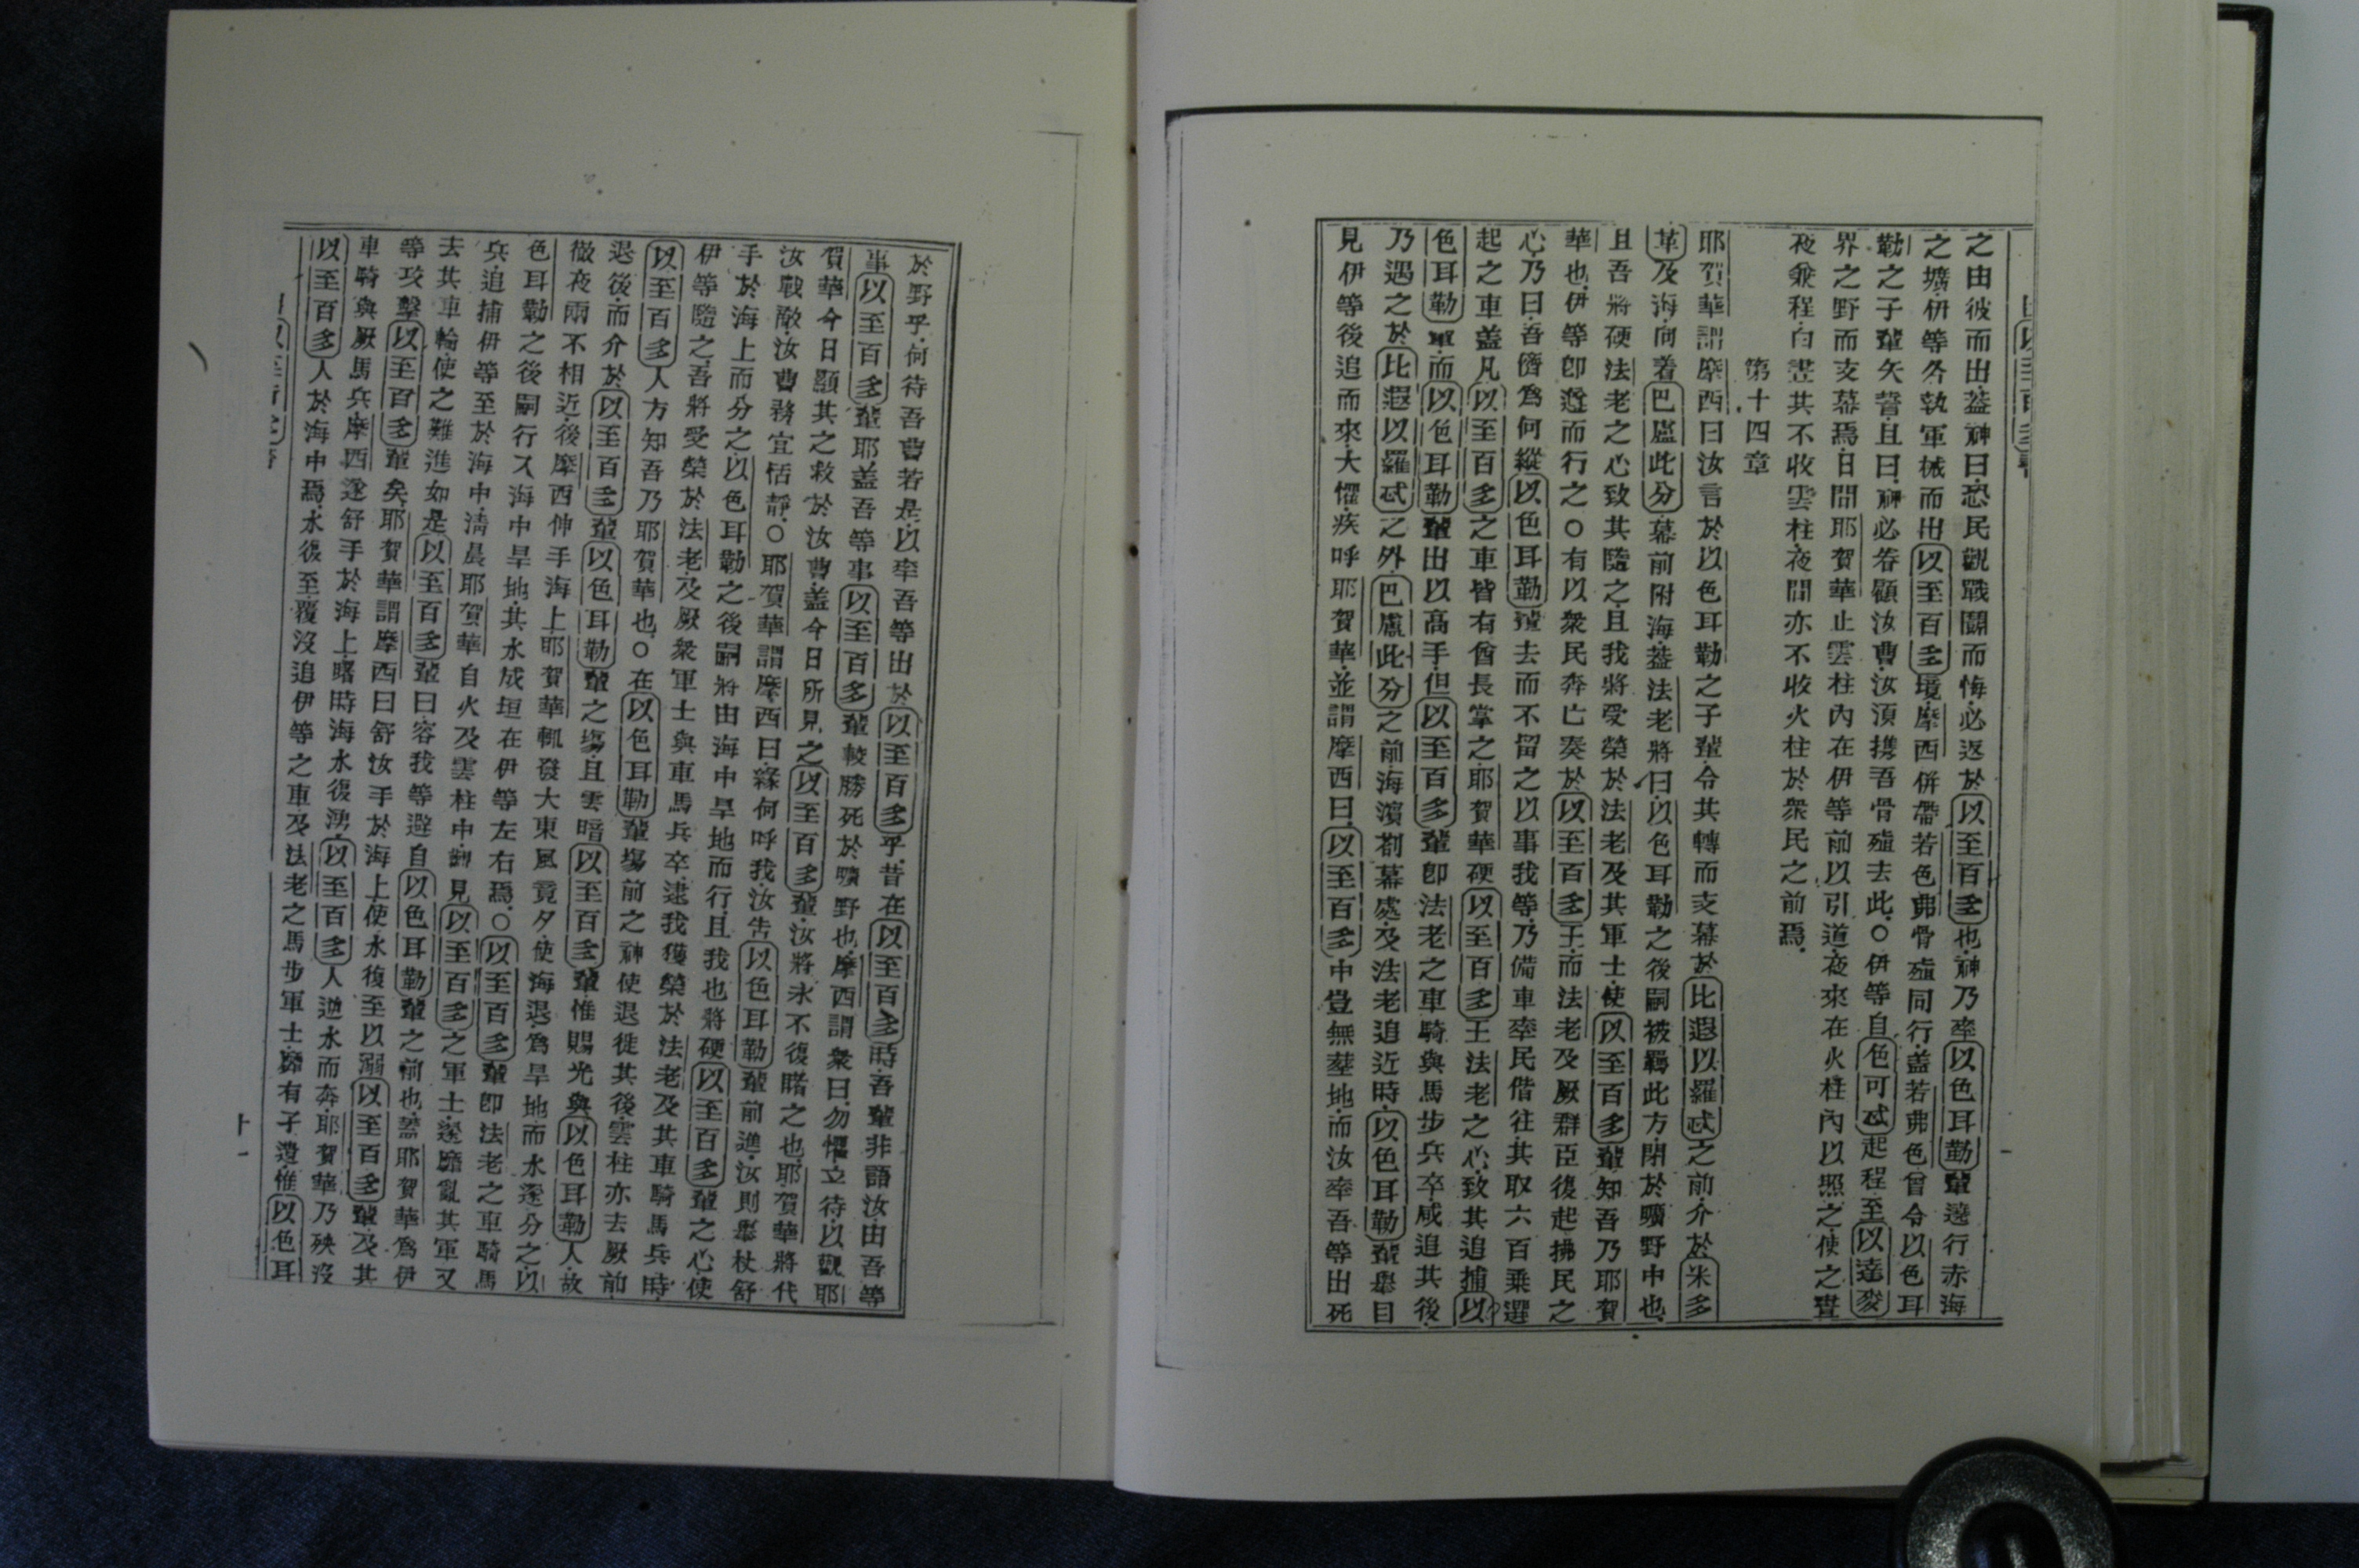 之由彼而出蓋神曰恐民觀戰鬭而悔必返於以至百多也神乃率以色耳勒輩遶行赤海
之壙伊等各執軍械而出以至百多境摩西併帶若色弗骨殖同行蓋若弗色曾令以色耳
勒之子輩矢誓且曰神必眷顧汝曹汝須攜吾骨殖去此〇伊等自色可忒起程至以達麥
界之野而支幕焉日間耶賀華止雲柱內在伊等前以引道夜來在火柱內以照之使之晝
夜兼程白晝其不收雲柱夜間亦不收火柱於衆民之前焉
第十四章
耶賀華謂摩西曰汝言於以色耳勒之子輩令其轉而支幕於比遐以羅忒之前介於米多
革及海向着巴盧此分幕前附海蓋法老將曰以色耳勒之後嗣被羈此方閉於曠野中也
且吾將硬法老之心致其隨之且我將受榮於法老及其軍士使以至百多輩知吾乃耶賀
華也伊等卽遵而行之〇有以衆民奔亡奏於以至百多王而法老及厥群臣後起拂民之
心乃曰吾儕為何縱以色耳勒輩去而不留之以事我等乃備車率民偕往其取六百乘選
起之車蓋凡以至百多之車皆有酋長掌之耶賀華硬以至百多王法老之心致其追捕以
色耳勒軍而以色耳勒輩出以高手但以至百多輩卽法老之車騎與馬步兵卒咸追其後
乃遇之於比遐以羅忒之外巴盧此分之前海濵剳幕處及法老追近時以色耳勒輩舉目
見伊等後追而來大懼疾呼耶賀華並謂摩西曰以至百多中豈無塟地而汝率吾等出死
於野乎何待吾曹若是以率吾等出於以至百多乎昔在以至百多時吾輩非語汝由吾等
事以至百多輩耶蓋吾等事以至百多輩較勝死於曠野也摩西謂衆曰勿懼立待以觀耶
賀華今日顯其之救於汝曹蓋今日所見之以至百多輩汝將永不復睹之也耶賀華將代
汝戰敵汝曹務宜恬靜〇耶賀華謂摩西曰緣何呼我汝告以色耳勒輩前進汝則舉杖舒
手於海上而分之以色耳勒之後嗣將由海中旱地而行且我也將硬以至百多輩之心使
伊等隨之吾將受榮於法老及厥衆軍士與車馬兵卒逮我獲榮於法老及其車騎馬兵時
以至百多人方知吾乃耶賀華也〇在以色耳勒輩塲前之神使退徙其後雲柱亦去厥前
退後而介於以至百多輩以色耳勒輩之塲且雲暗以至百多輩惟賜光與以色耳勒人故
徹夜兩不相近後摩西伸手海上耶賀華輒發大東風竟夕使海退為旱地而水遂分之以
色耳勒之後嗣行入海中旱地其水成垣在伊等左右焉〇以至百多輩卽法老之車騎馬
兵追捕伊等至於海中淸晨耶賀華自火及雲柱中觀見以至百多之軍士遂靡亂其軍又
去其車輪使之難進如是以至百多輩曰容我等避自以色耳勒輩之前也蓋耶賀華為伊
等攻擊以至百多輩矣耶賀華謂摩西曰舒汝手於海上使水復至以溺以至百多輩及其
車騎與厥馬兵摩西遂舒手於海上曙時海水復湧以至百多人逆水而奔耶賀華乃殃沒
以至百多人於海中焉水復至覆沒追伊等之車及法老之馬步軍士靡有孑遺惟以色耳
十一